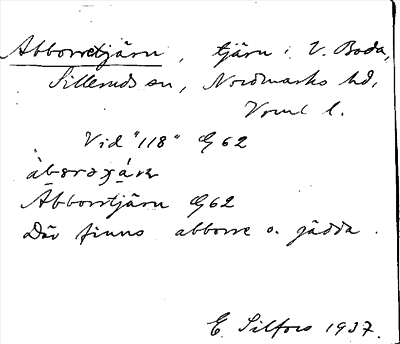 Abborretjärn, tjärn i V. Boda,
Silleruds sn, Nordmarks hd,
Vrml l.
Vid "118" G 62
Abborrtjärn G62
Där finns abborre o. gädda.
E. Silfors 1937.